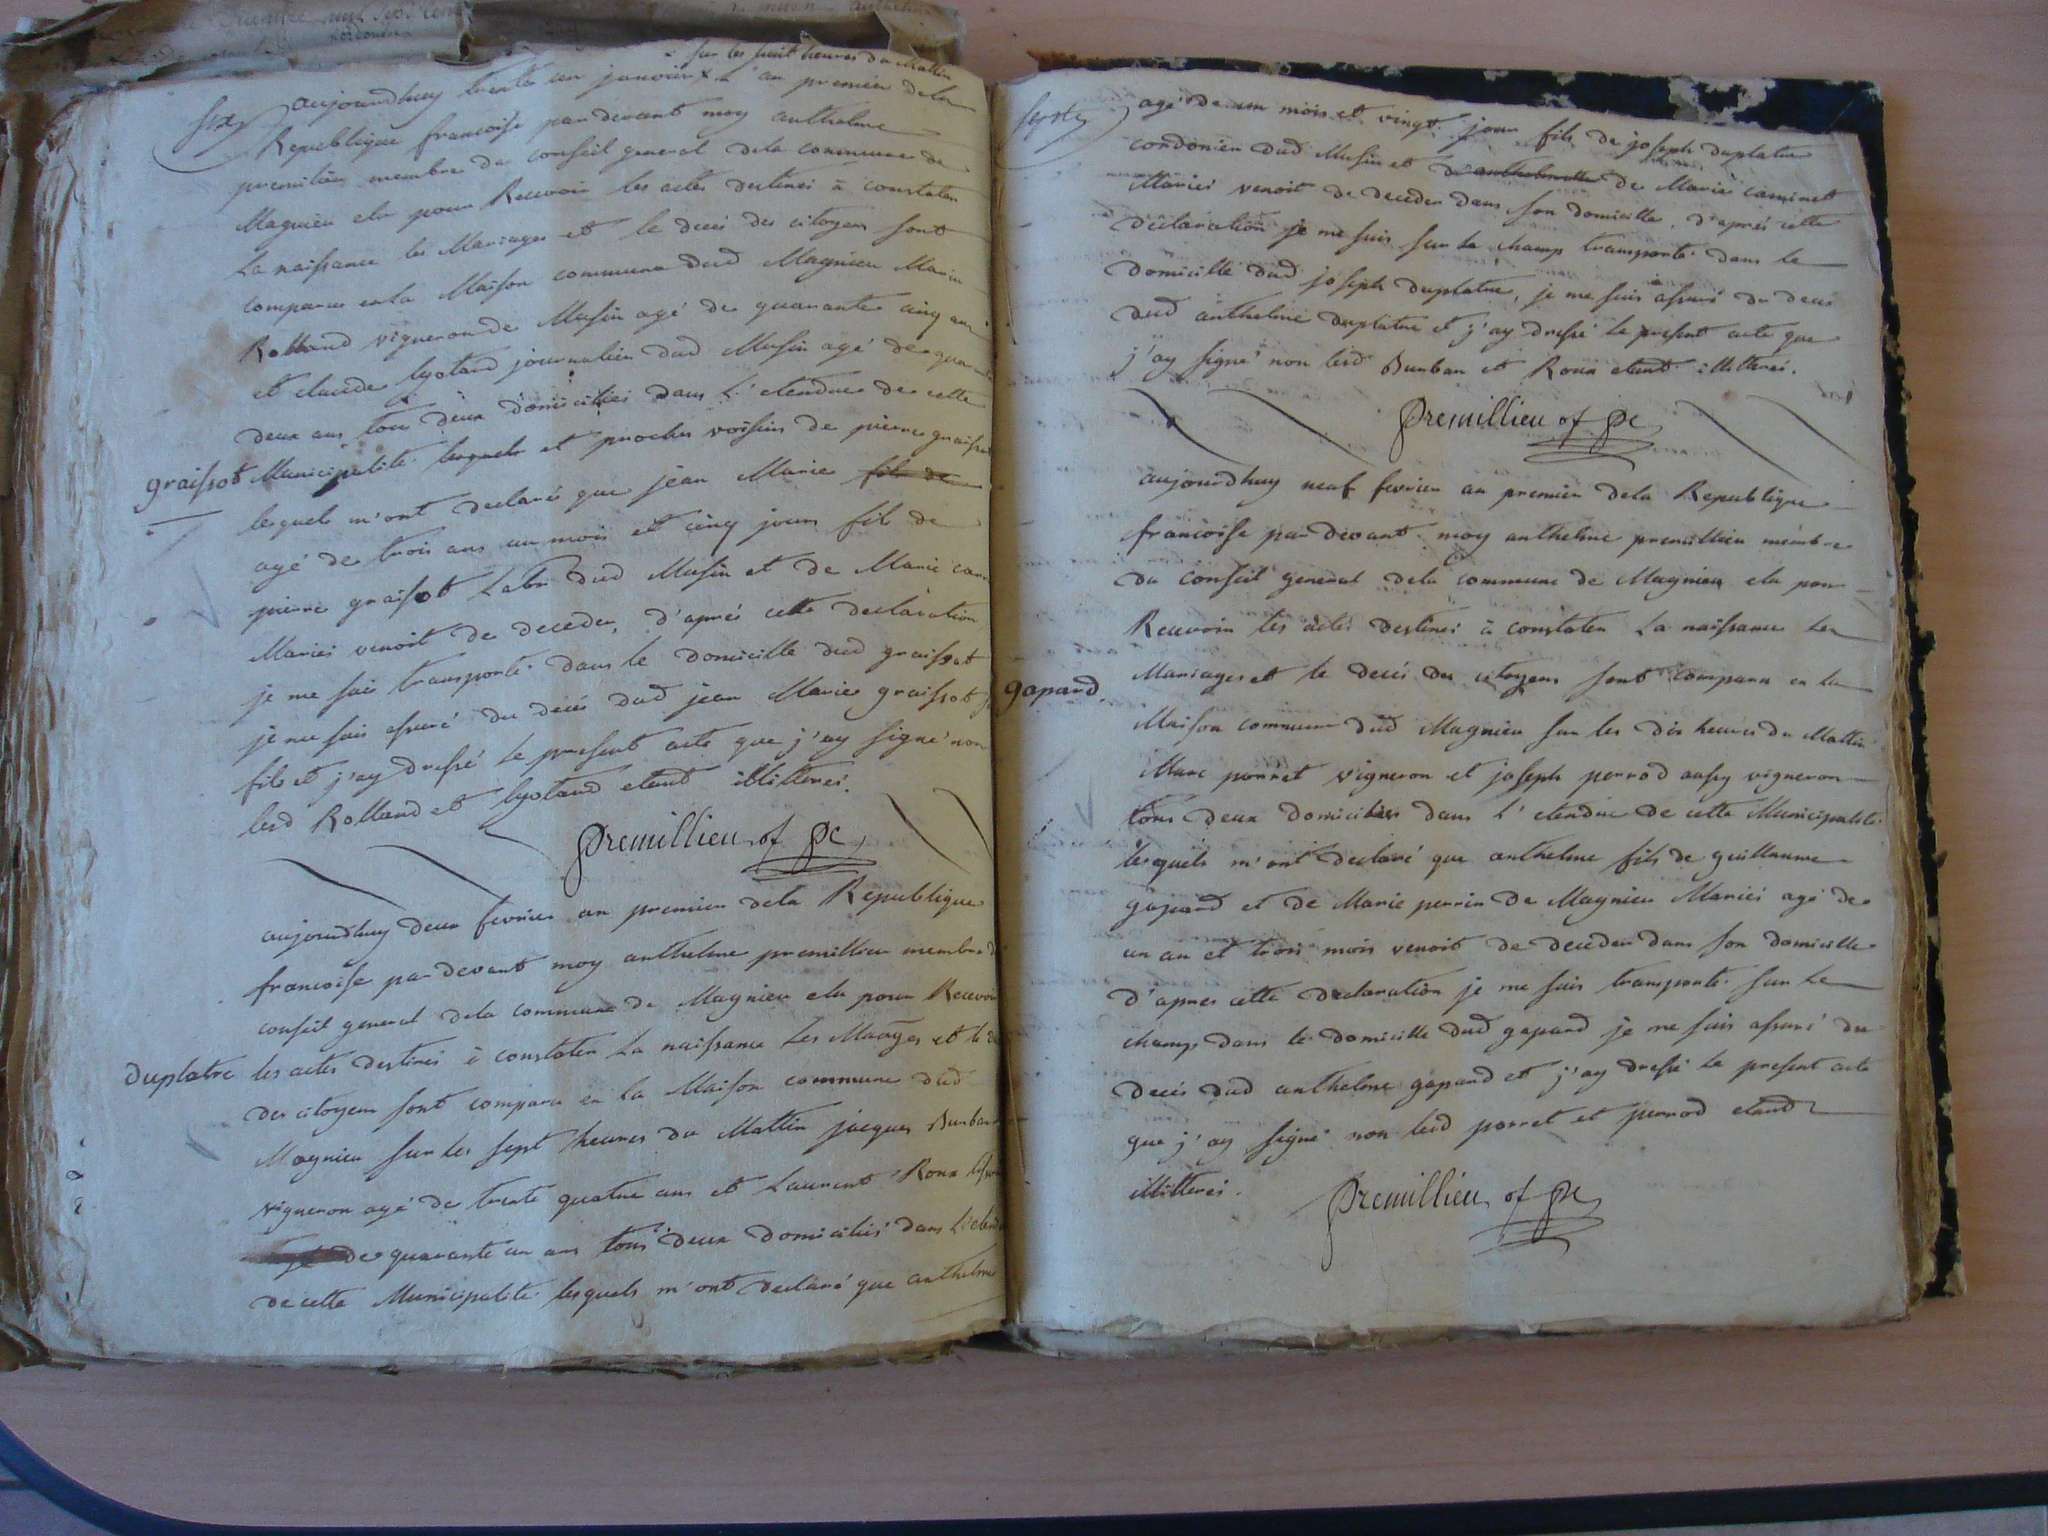 x sur les huit heures du Mattin
six
aujourdhuy trente un janvier x l'an premier dela
Republique francoise pardevant moy anthelme
premilieu membre du conseil general dela commune de
Magnieu elu pour Recevoir les actes destinés à constater
La naissance les Mariages et le decés des citoyens sont
comparus en la Maison commune dud Magnieu Marin
Rolland vigneron de Musin agé de quarante cinq ans
et claude lyotard journalier dud Musin agé de quarante
deux ans tou deux domiciliés dans L'etendue de cette
graissot
Municipalité lesquels et proches voisins de pierre graissot
lesquels m'ont declaré que jean Marie fils de
agé de trois ans un mois et cinq jours fils de
pierre graissot Labr dud Musin et de Marie
Mariés venoit de deceder, d'aprés cette declaration
je me suis transporté dans le domicille dud graissot
je me suis assuré du decés dud jean Marie graissot
fils et j'ay dressé le present acte que j'ay signé non
lesd Rolland et lyotard etant illitterés.
premillieu of pc
aujourdhuy deux fevrier an premier dela Republique
francoise pardevant moy anthelme premillieu membre du
conseil general dela commune de Magnieu elu pour Recevoir
duplatre
les actes destinés à constater La naissance Les Maages et le
des citoyens sont comparu en La Maison commune dud
Magnieu sur les sept heures du Mattin jacques Burban
vigneron agé de trente quatre ans et Laurent Roux
de quarante un ans tous deux domiciliés dans L'etendue
de cette Municipalité lesquels m'ont declaré que anthelme
sept
agé de un mois et vingt jour fils de joseph duplatre
cordonier dud Musin et d'anthelmette de Marie caminet
Mariés venoit de deceder dans son domicille, d'aprés cette
declaration je me suis sur le champ transporté dans le
domicille dud joseph duplatre, je me suis assuré du deces
dud anthelme duplatre et j'ay dressé le present acte que
j'ay signé non lesd Burban et Roux etant illitterés.
premillieu of pc
aujourdhuy neuf fevrier an premier dela Republique
francoise par devant moy anthelme premillieu membre
du conseil general dela commune de Magnieu elu pour
Recevoir les actes destinés à constater La naissance Les
gapard
Mariages et le decés des citoyens sont comparu en La
Maison commune dud Magnieu sur les dix heures du Mattin
Marc porret vigneron et joseph perrod aussy vigneron
tous deux domiciliés dans L'etendue de cette Municipalité
lesquels m'ont declaré que anthelme fils de guillaume
gapard et de Marie perrin de Magnieu Mariés agé de
un an et trois mois venoit de deceder dans son domicille
d'apres cette declaration je me suis transporté sur Le
champ dans le domicille dud gapard je me suis assuré du
decés dud anthelme gapard et j'ay dressé le present acte
que j'ay signé non lesd porret et perrod etant
illitterés.
premillieu of pc